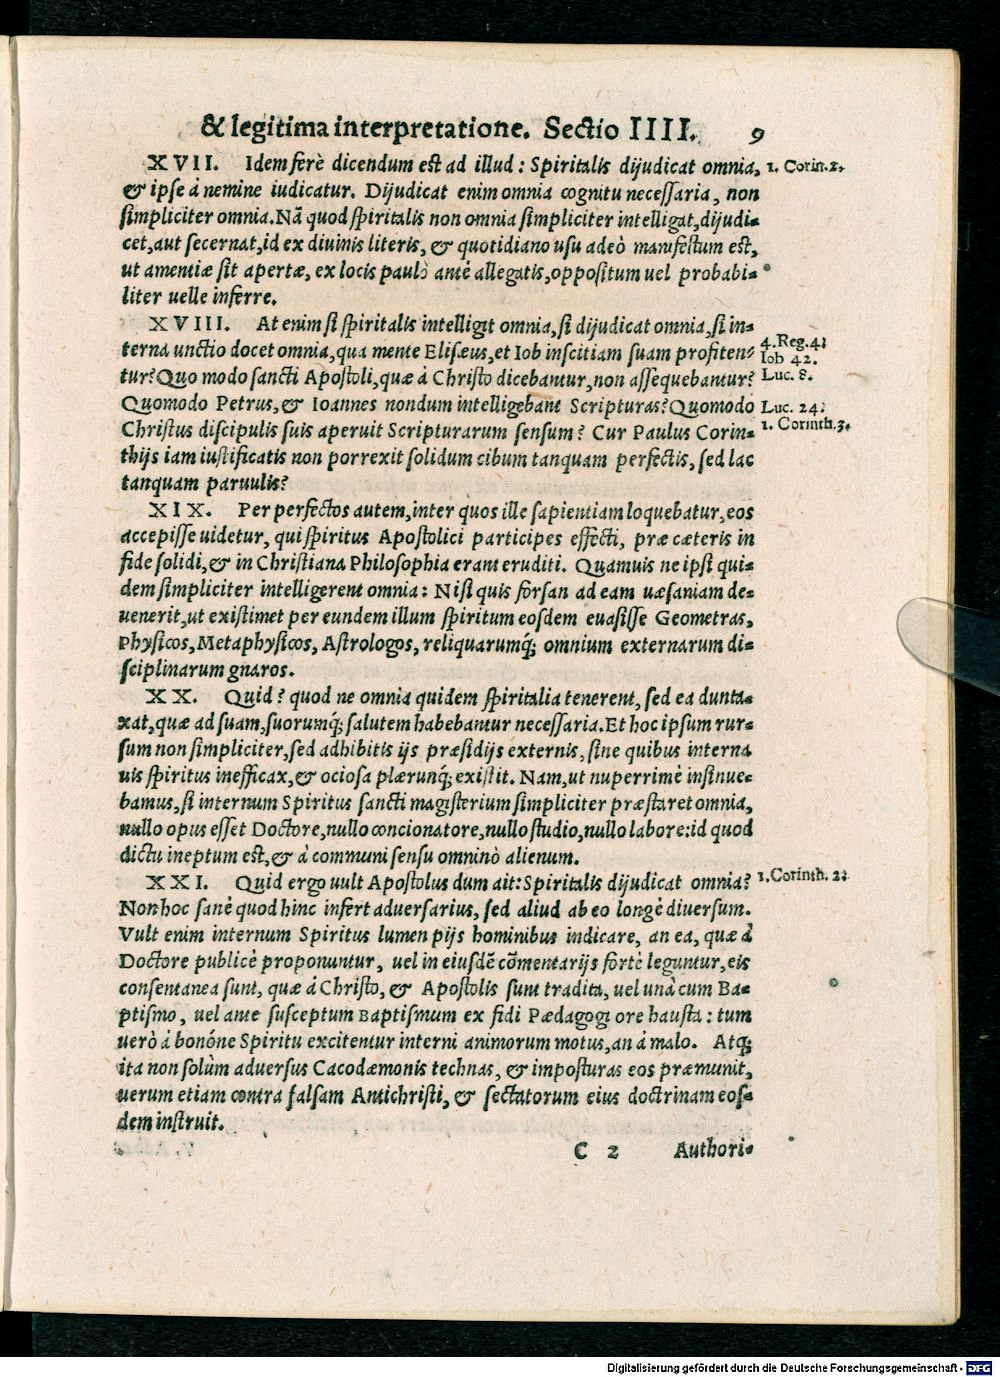 & legitima interpretatione. Sectio IIII. 9
XVII. Idem ferè dicendum est ad illud: Spiritalis dijudicat omnia, 1. Corin. 2.
& ipse à nemine iudicatur. Dijudicat enim omnia cognitu necessaria, non
simpliciter omnia. Nã quod spiritalis non omnia simpliciter intelligat, dijudi-
cet, aut secernat, id ex diuinis literis, & quotidiano usu adeò manifestum est,
ut amentiæ sit apertæ, ex locis paulò antè allegatis, oppositum uel probabi-
liter uelle inferre.
XVIII. At enim si spiritalis intelligit omnia, si dijudicat omnia, si in-
terna unctio docet omnia, qua mente Elisæus, et Iob inscitiam suam profiten- 4. Reg. 4.
Iob 42.
tur? Quo modo sancti Apostoli, quæ à Christo dicebantur, non assequebantur? Luc. 8.
Quomodo Petrus, & Ioannes nondum intelligebant Scripturas? Quomodo Luc. 24.
Christus discipulis suis aperuit Scripturarum sensum? Cur Paulus Corin- 1. Corinth. 3.
thijs iam iustificatis non porrexit solidum cibum tanquam perfectis, sed lac
tanquam paruulis?
XIX. Per perfectos autem, inter quos ille sapientiam loquebatur, eos
accepisse uidetur, qui spiritus Apostolici participes effecti, præ cæteris in
fide solidi, & in Christiana Philosophia erant eruditi. Quamuis ne ipsi qui-
dem simpliciter intelligerent omnia: Nisi quis forsan ad eam uæsaniam de-
uenerit, ut existimet per eundem illum spiritum eosdem euasisse Geometras,
Physicos, Metaphysicos, Astrologos, reliquarumq́; omnium externarum di-
sciplinarum gnaros.
XX. Quid? quod ne omnia quidem spiritalia tenerent, sed ea dunta-
xat, quæ ad suam, suorumq́; salutem habebantur necessaria. Et hoc ipsum rur-
sum non simpliciter, sed adhibitis ijs præsidijs externis, sine quibus interna
uis spiritus inefficax, & ociosa plærunq́; existit. Nam, ut nuperrimè insinue-
bamus, si internum Spiritus sancti magisterium simpliciter præstaret omnia,
nullo opus esset Doctore, nullo concionatore, nullo studio, nullo labore: id quod
dictu ineptum est, & à communi sensu omninò alienum.
XXI. Quid ergo uult Apostolus dum ait: Spiritalis dijudicat omnia? 1. Corinth. 2.
Non hoc sanè quod hinc infert aduersarius, sed aliud ab eo longè diuersum.
Vult enim internum Spiritus lumen pijs hominibus indicare, an ea, quæ à
Doctore publicè proponuntur, uel in eiusdẽ cõmentarijs fortè leguntur, eis
consentanea sunt, quæ à Christo, & Apostolis sunt tradita, uel unà cum Ba-
ptismo, uel ante susceptum Baptismum ex fidi Pædagogi ore hausta: tum
uerò à bonóne Spiritu excitentur interni animorum motus, an à malo. Atq́;
ita non solùm aduersus Cacodæmonis technas, & imposturas eos præmunit,
uerum etiam contra falsam Antichristi, & sectatorum eius doctrinam eos-
dem instruit.
C 2 Authori-
Digitalisierung gefördert durch die Deutsche Forschungsgemeinschaft - DFG